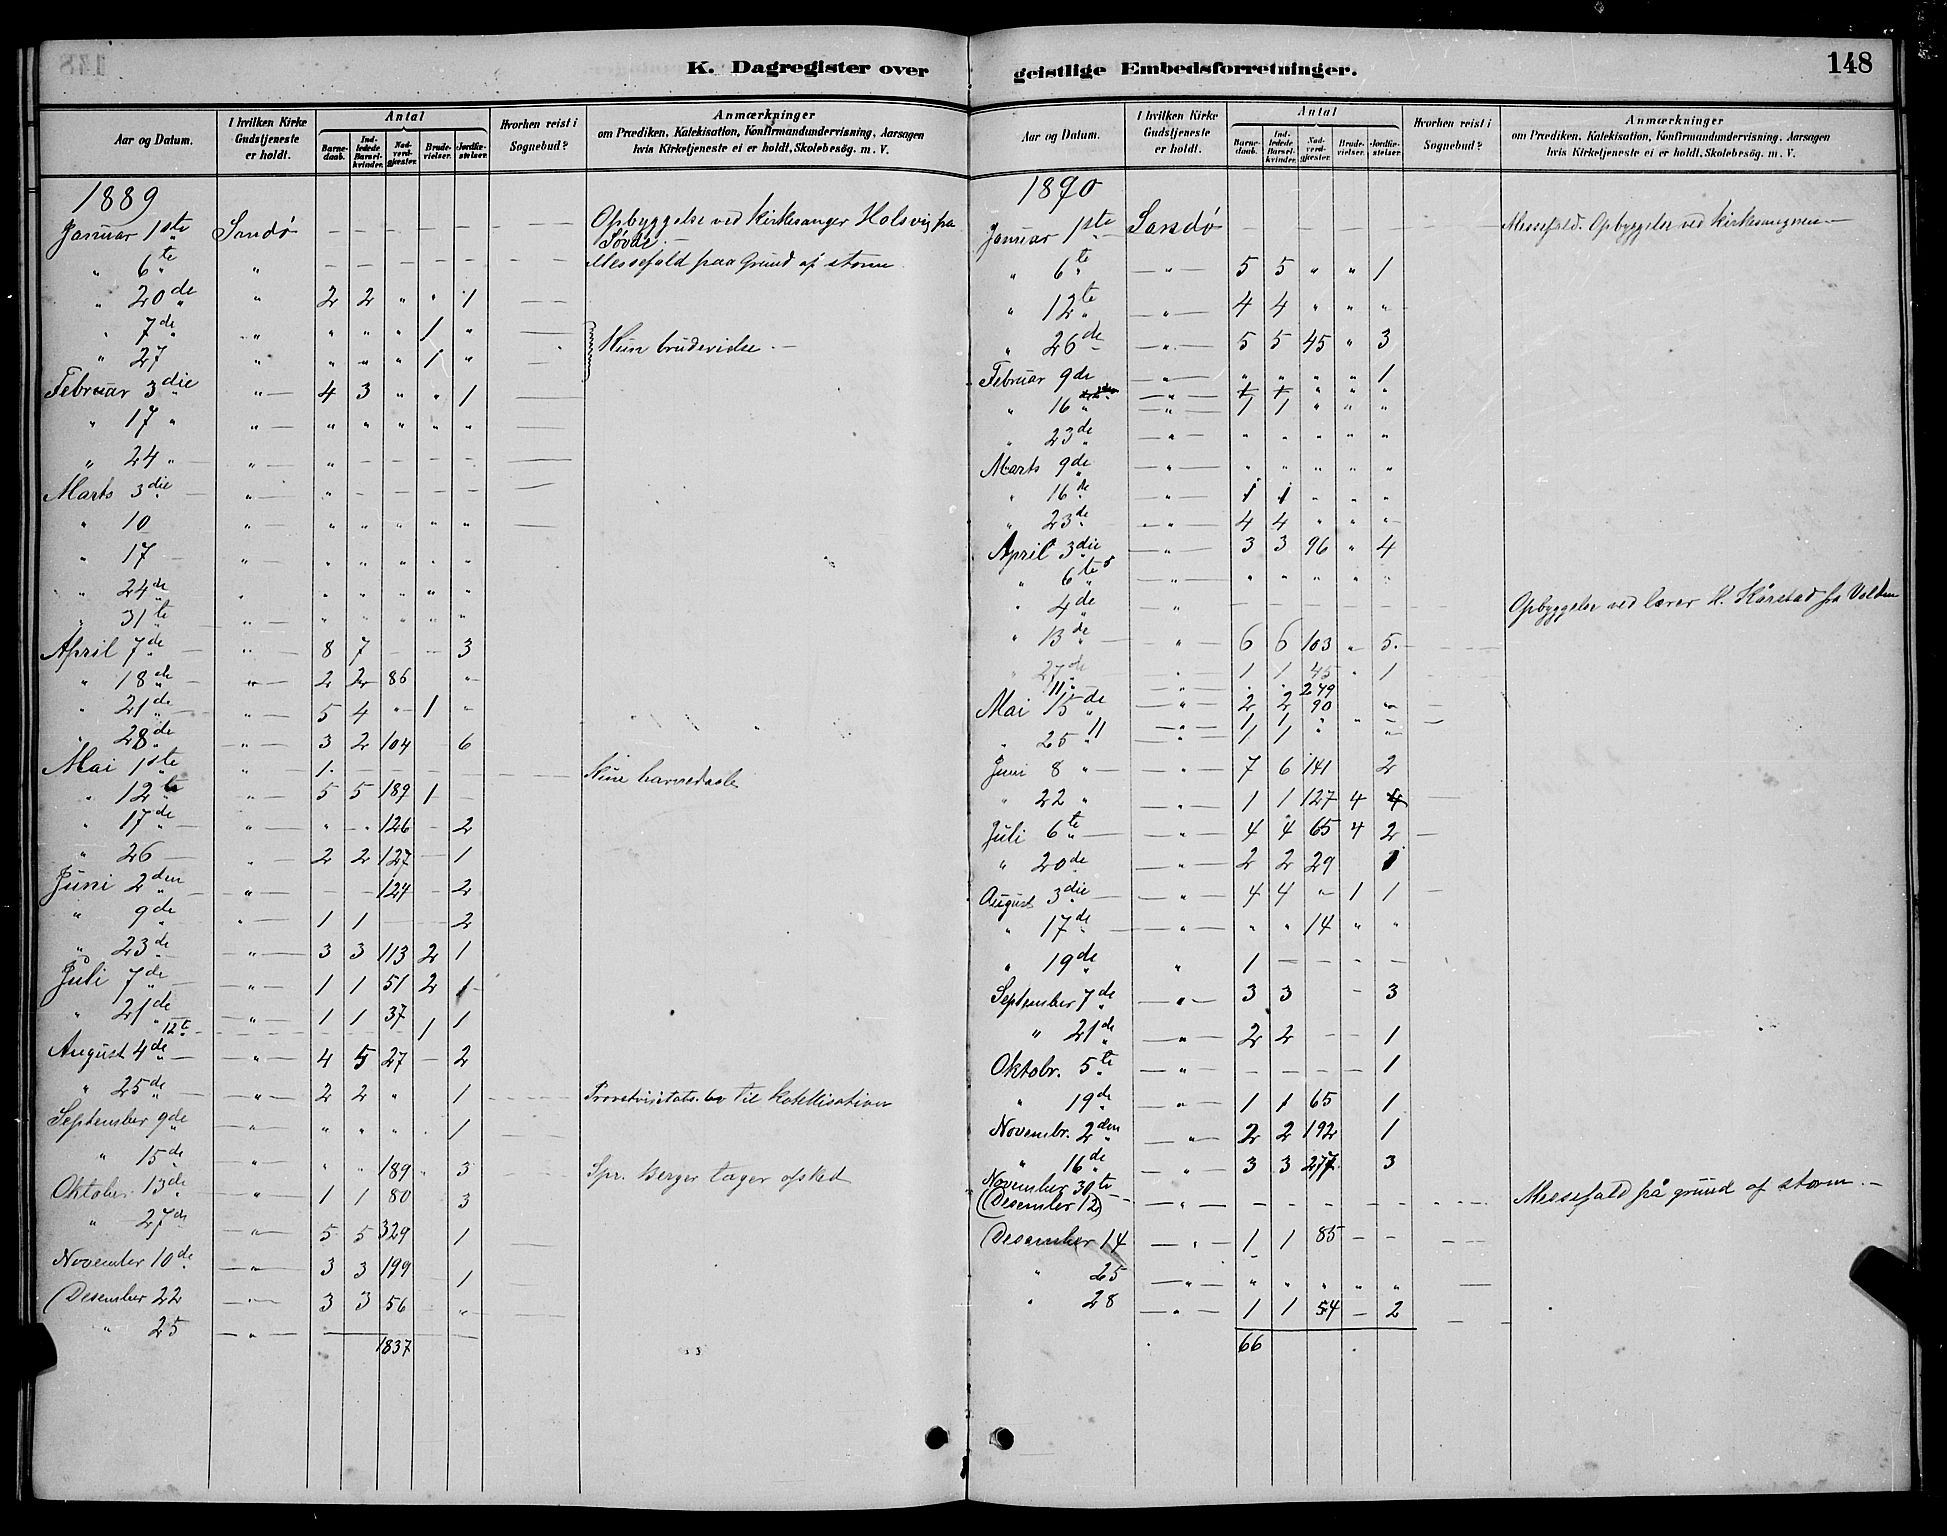 K. Dagregister over geistlige Embedsforretninger. 148
Aar og Datum. | I hvilken Kirke Gudstjeneste er holdt. | Antal | Barnedaab. | Indledede Barselkvinder. | Nadverdgjester. | Brudevielser. | Jordfæstelser. | Hvorhen reist i Sognebud? | Anmærkninger om Prædiken, Katekisation, Konfirmandundervisning, Aarsagen hvis Kirketjeneste ei er holdt, Skolebesøg. m. V.
1889
Januar 1ste Sandø – – – – – – – Opbyggelse ved Kirkesanger Holsvig fra
Søvde.
" 6te " – – – – – – – Messefald paa Grund af storm
" 20de " 2 2 " " 1 – –
" 7de " " " " 1 " —
" 27 " " " " 1 " — Kun brudevidse.–
Februar 3die " – 4 3 " " 1 —
" 17 " " – " " " " " —
" 24 " " – " – – – – —
Marts 3die " – " – – – – —
" 10 " – " " " " " —
" 17 – " – " " " " "
" 24de " " " " " "
" 31te " – " " " " "
April 7de – " – 8 7 – – 3
" 18de – " – 2 2 86 "
" 21de – " – 5 4 " 1 "
" 28de – " – 3 2 104 6
Mai 1ste " 1 – – – – – Kun barnedaab
" 12te " – 5 5 189 1 –
" 17de – " – " " 126 – 2
" 26 – " – 2 2 127 – 1
Juni 2den – " – – – 124 – 2
" 9de " – 1 1 2
" 23de " – 3 3 113 2 1
Juli 7de – " – 1 1 51 2 1
" 21de " – 1 1 37 1
12te – – – – – – 1
August 4de – " – 4 5 27 – 2
" 25de – " – 2 2 " 1 – – – Provstvisitats. til Katekisation
September 9de " – " " " " 1 – –
" 15de " – " " 189 " 3 – – Spr. Berger tager afsked
Oktober 13de " – 1 1 80 3
" 27de – " – 5 5 329 1
November 10de – " – 3 3 199 1
Desember 22 – " – 3 3 56 "
" 25 – " –
1837
Aar og Datum. | I hvilken Kirke Gudstjeneste er holdt. | Antal | Barnedaab. | Indledede Barselkvinder. | Nadverdgjester. | Brudevielser. | Jordfæstelser. | Hvorhen reist i Sognebud? | Anmærkninger om Prædiken, Katekisation, Konfirmandundervisning, Aarsagen hvis Kirketjeneste ei er holdt, Skolebesøg. m. V.
1890
Januar 1ste Sandø – – – – – – – Messefald. Opbyggelse ved Kirkesangeren –
" 6te – " – 5 5 " " 1
" 12te – " – 4 4 " " "
" 26de – " – 5 5 45 " 3
Februar 9de – " – " " " " 1
" 16 – " – 1 1 " " "
" 23de – " – " " " " "
Marts 9de – " – " " " " "
" 16de – " – 1 1 " " "
" 23de – " – 4 4 " " "
April 3die – " – 3 3 96 " 4
" 6te " " " " " "
" 4de " – – – – – Opbyggelse ved lærer K. Hårstad fra Volden
" 13de – " 6 6 103 " 5 – – –
" 27de – " 1 1 45 " 1
11 – " – " " 249
Mai 15de – " – 2 2 90 " –
" 25 " – " – 1 1 " " " –
1 1 "
Juni 8 " – " – 7 6 141 2
" 22 " – " – 1 1 127 4 4 –
Juli 6te – " – 4 4 65 4 2 –
" 20de – " – 2 2 29 1
August 3die – " – 4 4 " 1 1 –
" 17de – " – " " 14 " "
" 19de " 1 – – – –
September 7de – " – 3 3 – 3
" 21de – " – 2 2 – – 1
Oktobr. 5te – " – – – – – 1
" 19de – " – 1 1 65 1
Novembr. 2den – " – 2 2 192 1
" 16de – " – 3 3 277 3
November 30te – –
(Desember 12) – " – – – – – – – – – Messefald på grund af storm. –
Desember 14 – " – 1 1 85 – – – –
" 25 – " – " " " " " —
" 28 – " – 1 1 54 – 2
66